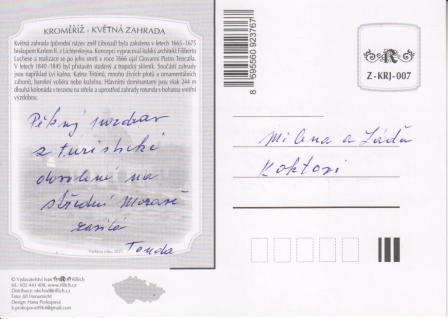 KROMĚŘÍŽ - KVĚTNÁ ZAHRADA
Květná zahrada (původní název zněl Libosad) byla založena v letech 1665–1675
biskupem Karlem II. z Lichtensteinu. Koncepci vypracoval italský architekt Filiberto
Luchese a realizace se po jeho smrti v roce 1666 ujal Giovanni Pietro Tencalla.
V letech 1840-1845 byl přistavěn studený a tropický skleník. Součástí zahrady
jsou například Lví kašna, Kašna Tritónů, mnoho živých plotů a ornamentálních
záhonů, barokní voliéra nebo kuželka. Hlavními dominantami jsou však 244 m
dlouhá kolonáda s terasou na střeše a uprostřed zahrady rotunda s bohatou vnitřní
výzdobou.
Pěkný pozdrav
z turistické
dovolené na
střední Moravě
zasílá
Tonda
8 595560 923767
Z-KRJ-007
Milena a Láďa
Koktovi
© Vydavatelství Ivan Rillich
tel.: 602 441 409, www.rillich.cz
Distribuce: obchod@rillich.cz
Foto: Jiří Henzl
Design: Hana Prokopová
h.prokopova1984@gmail.com